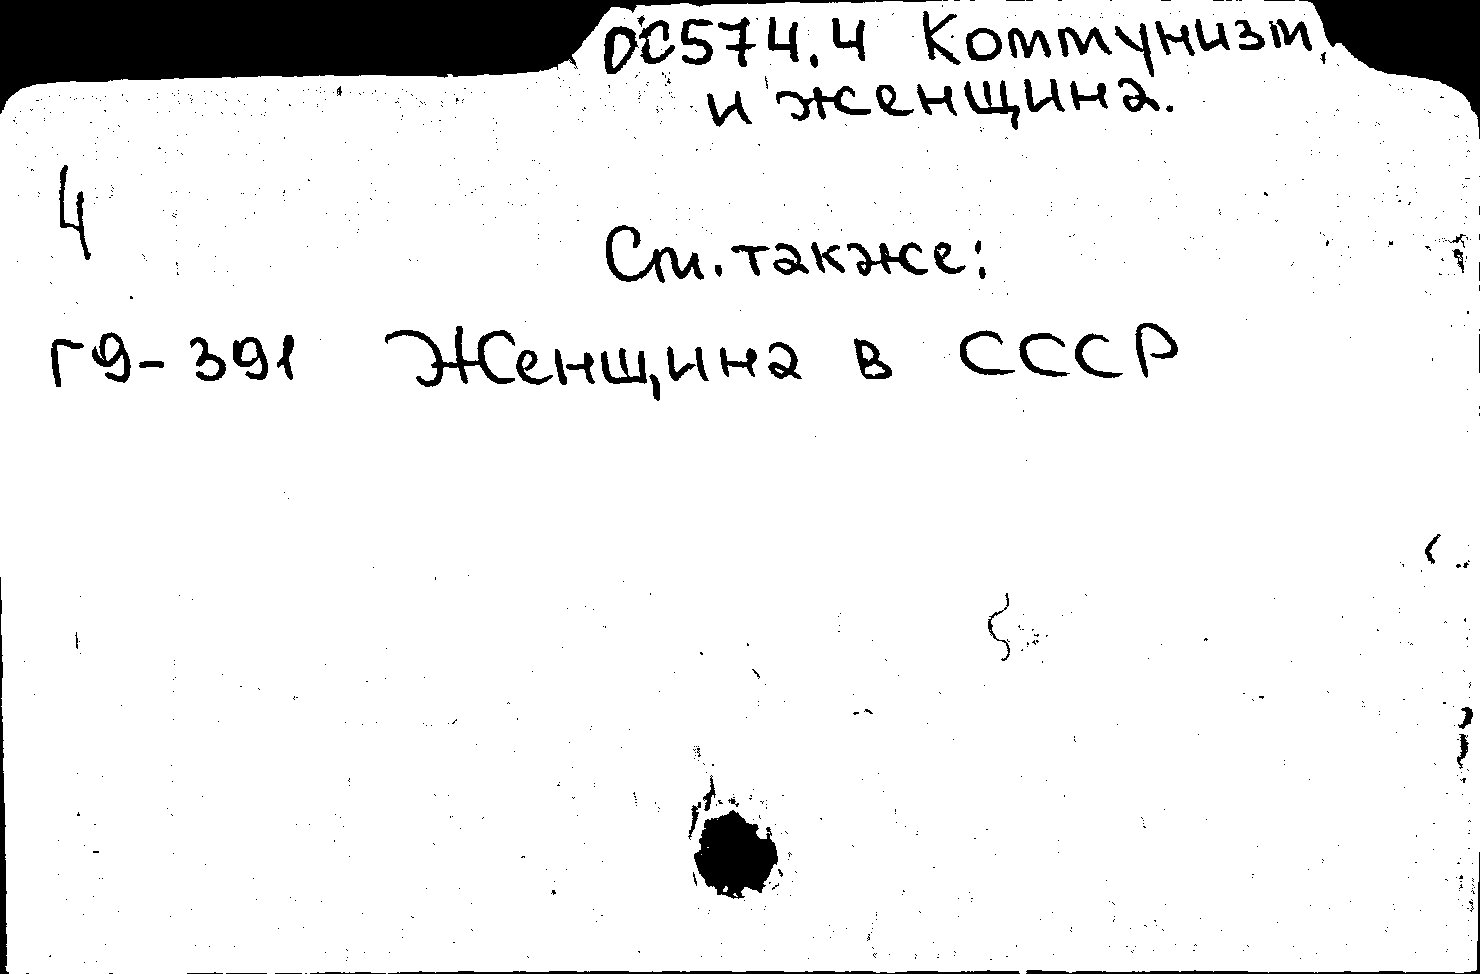 ОС574.4 Коммунизм
и женщина.
4
См. также:
Г9-391 Женщина в СССР